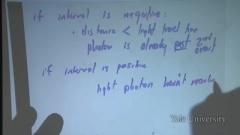 if interval is negative:
• distance < light travel time
photon is already past 2nd
event
if interval is positive
light photon hasn't reache
Yale University